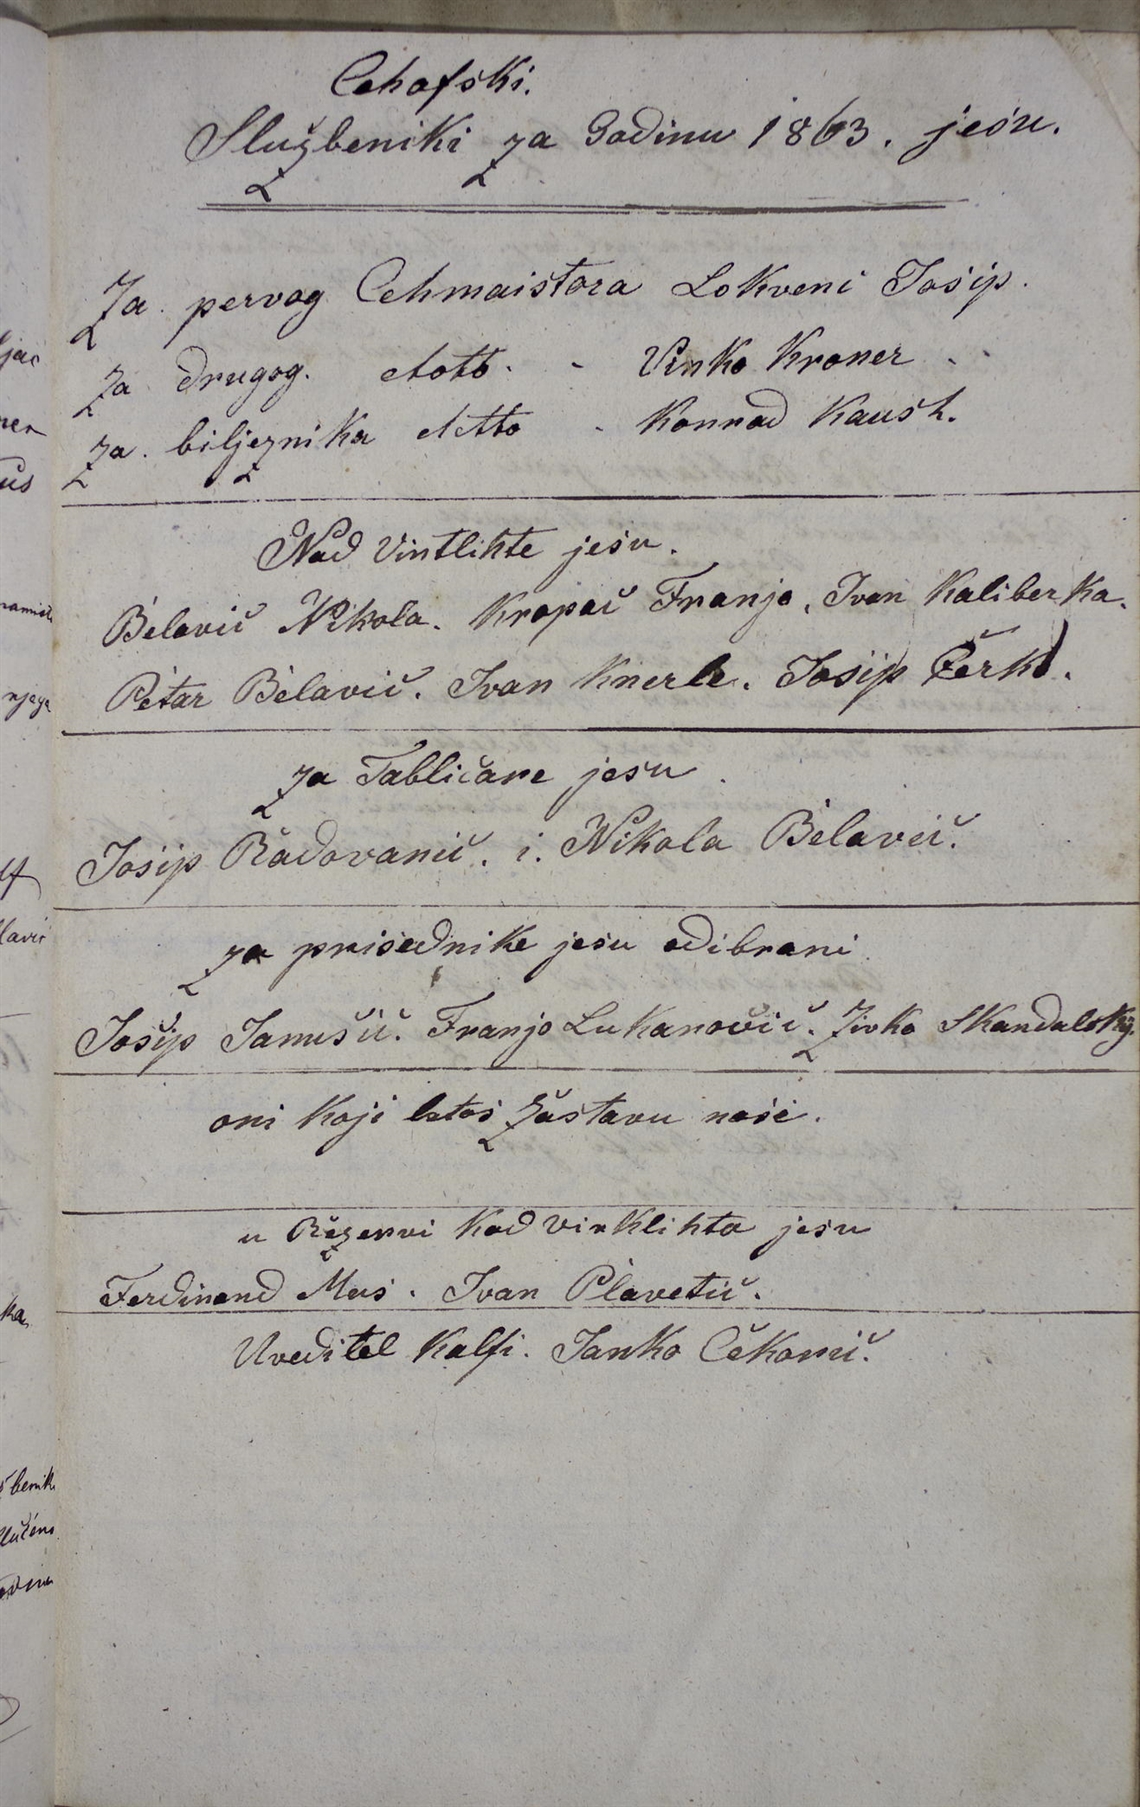 Cehofski.
Službeniki za Godinu 1863. jesu.
Za pervog Cehmaistora Lokveni Josip.
Za drugog. detto. - Vinko Kroner
Za. biljeznika detto - Konrad Kaush.
Nad Vintlihte jesu.
Belavič Nikola. Kropač Franjo. Ivan Kaliberka.
Petar Belavič. Ivan Knerle. Josip Čerko.
Za Tabličare jesu
Josip Radovanič. i. Nikola Belavič.
za prisednike jesu odibrani
Josip Janušič. Franjo Lukanovič. Živko Skandalsky.
oni koji letos Zastavu nose.
u Rezervi kod vinklihta jesu
Ferdinand Mus. Ivan Plavetič.
Uveditel kalfi. Janko Čekonič.